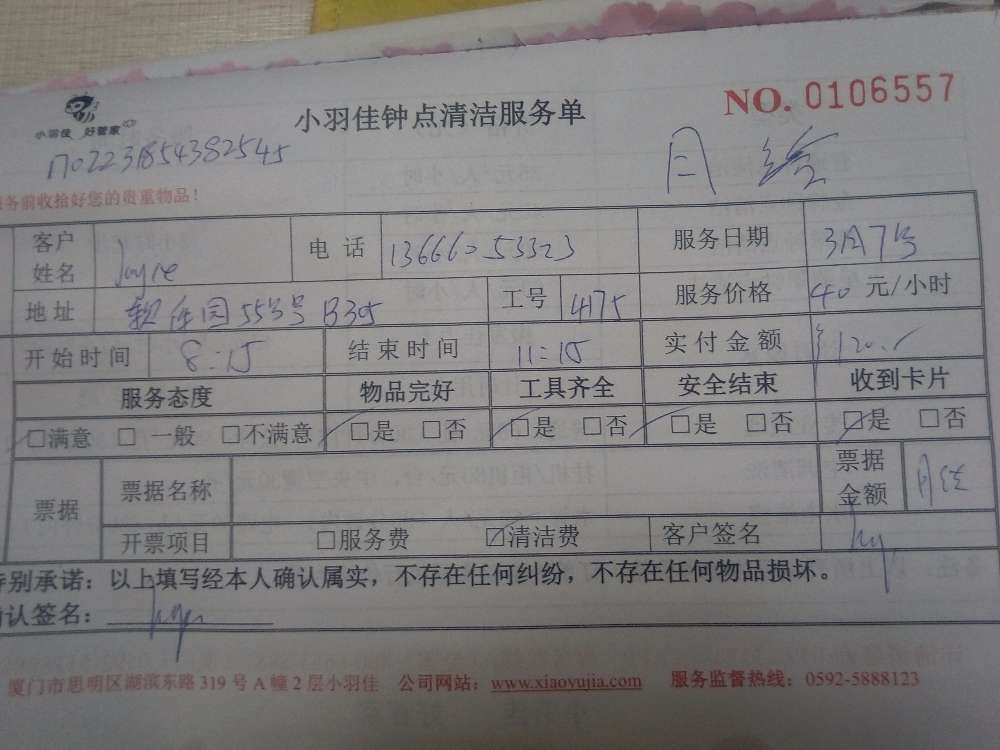 小羽佳 好管家
小羽佳钟点清洁服务单
NO. 0106557
1702231854382545
月结
务前收拾好您的贵重物品！
客户姓名 Joyce 电话 13666053323 服务日期 3月7号
地址 软件园55号 B395 工号 4175 服务价格 40 元/小时
开始时间 8:15 结束时间 11:15 实付金额 ¥120.
服务态度 物品完好 工具齐全 安全结束 收到卡片
□满意 □一般 □不满意 □是 □否 □是 □否 □是 □否 □是 □否
票据 票据名称 票据金额 月结
开票项目 □服务费 ☑清洁费 客户签名
特别承诺：以上填写经本人确认属实，不存在任何纠纷，不存在任何物品损坏。
确认签名：
厦门市思明区湖滨东路 319 号 A 幢 2 层小羽佳 公司网站：www.xiaoyujia.com 服务监督热线：0592-5888123